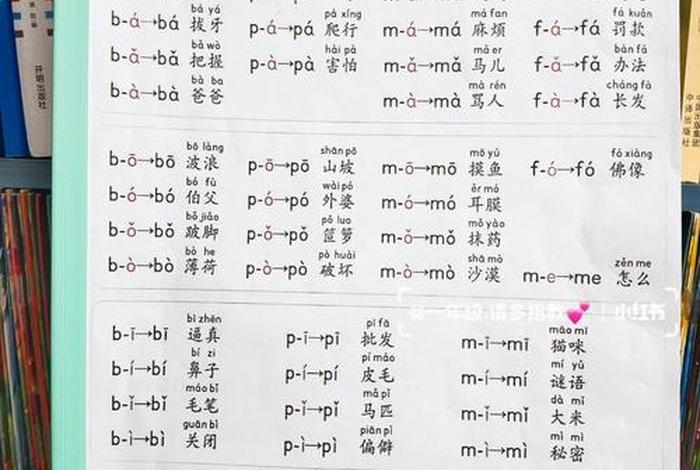 bá yá
b-á→bá 拔牙
bǎ wò
b-ǎ→bǎ 把握
bà ba
b-à→bà 爸爸
pá xíng
p-á→pá 爬行
hài pà
p-à→pà 害怕
má fan
m-á→má 麻烦
mǎ er
m-ǎ→mǎ 马儿
mà rén
m-à→mà 骂人
fá kuǎn
f-á→fá 罚款
bàn fǎ
f-ǎ→fǎ 办法
cháng fà
f-à→fà 长发
bō làng
b-ō→bō 波浪
bó fù
b-ó→bó 伯父
bǒ jiǎo
b-ǒ→bǒ 跛脚
bò he
b-ò→bò 薄荷
shān pō
p-ō→pō 山坡
wài pó
p-ó→pó 外婆
pǒ luo
p-ǒ→pǒ 笸箩
pò huài
p-ò→pò 破坏
mō yú
m-ō→mō 摸鱼
ěr mó
m-ó→mó 耳膜
mǒ yào
m-ǒ→mǒ 抹药
shā mò
m-ò→mò 沙漠
fó xiàng
f-ó→fó 佛像
zěn me
m-e→me 怎么
@一年级.请多指教💕 | 小红书
bī zhēn
b-ī→bī 逼真
bí zi
b-í→bí 鼻子
máo bǐ
b-ǐ→bǐ 毛笔
guān bì
b-ì→bì 关闭
pī fā
p-ī→pī 批发
pí máo
p-í→pí 皮毛
mǎ pǐ
p-ǐ→pǐ 马匹
piān pì
p-ì→pì 偏僻
māo mī
m-ī→mī 猫咪
mí yǔ
m-í→mí 谜语
dà mǐ
m-ǐ→mǐ 大米
mì mì
m-ì→mì 秘密
开明出版社